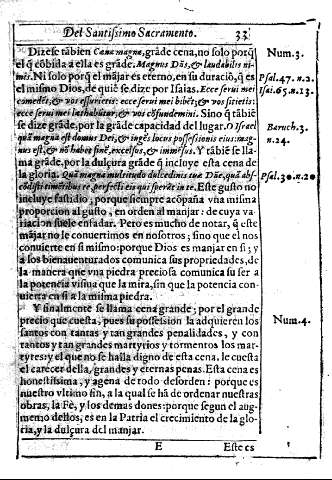 Del Santissimo Sacramento. 33
Dizese tãbien Cana magna, grãde cena, no solo porq̃
el q̃ cõbida a ella es grãde. Magnus Dñs, & laudabilis ni-
mis. Ni solo porq̃ el májar es eterno, en su duració, q̃ es
el mismo Dios, de quiẽ se dize por Isaias. Ecce serui mei
comedẽt, & vos esurietis: ecce serui mei bibẽt, & vos sitietis:
ecce serui mei lætabũtur, & vos cõfundemini. Sino q̃ tãbiẽ
se dize grãde, por la grãde capacidad del lugar. O Israel
quã magna est domus Dei, & ingẽs locus possessionis eius: mag-
nus est, & nõ habet finẽ, excelsus, & immẽsus. Y tãbiẽ se lla
ma grãde, por la dulçura grãde q̃ incluye esta cena de
la gloria. Quã magna multitudo dulcedinis tuæ Dñe, quã abs-
cõdisti timẽtibus te, perfecisti eis qui sperãt in te. Este gusto no
incluye fastidio, porque siempre acõpaña vna misma
proporcion al gusto, en orden al manjar: de cuya va-
riacion suele enfadar. Pero es mucho de notar, q̃ este
májar no le conuertimos en nosotros; sino que el nos
conuierte en si mismo: porque Dios es manjar en si; y
a los bienauenturados comunica sus propriedades, de
la manera que vna piedra preciosa comunica su ser a
la potencia visiua que la mira, sin que la potencia con-
uierta en si a la misma piedra.
Y finalmente se llama cena grande; por el grande
precio que cuesta, pues su possession la adquieren los
santos con tantas y tan grandes penalidades, y con
tantos y tan grandes martyrios y tormentos los mar-
tyres: y el que no se halla digno de esta cena, le cuesta
el carecer della, grandes y eternas penas. Esta cena es
honestissima, y agena de todo desorden: porque es
nuestro vltimo fin, a la qual se hã de ordenar nuestras
obras, la Fè, y los demas dones: porque segun el aug-
mento dellos, es en la Patria el crecimiento de la glo-
ria, y la dulçura del manjar.
E Este es
Num.3.
Psal.47.n.2.
Isai.65.n.13.
Baruch.3.
n.24.
Psal.30.n.20
Num.4.